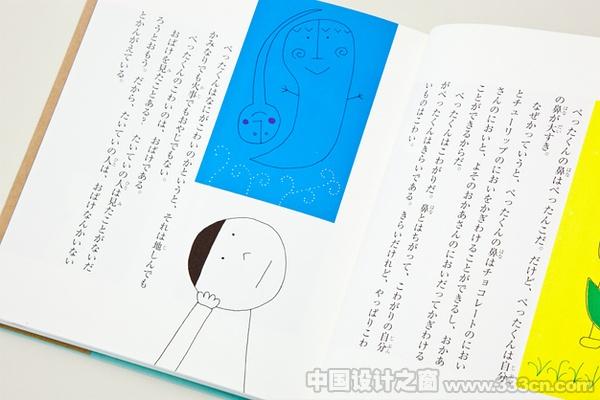 ぺったくんの鼻はぺったんこだ。だけど、ぺったくんは自分
の鼻が大すき。
なぜかっていうと、ぺったくんの鼻はチョコレートのにおい
とチューリップのにおいをかぎわけることができるし、おかあ
さんのにおいと、よそのおかあさんのにおいだってかぎわける
ことができるからだ。
ぺったくんはこわがりだ。鼻とはちがって、こわがりの自分
がぺったくんはきらいである。きらいだけれど、やっぱりこわ
いものはこわい。
ぺったくんはなにがこわいのかというと、それは地しんでも
かみなりでも火事でもおやじでもない。
ぺったくんのこわいのは、おばけである。
おばけを見たことある? たいていの人は見たことがないだ
ろうとおもう。だから、たいていの人は、おばけなんかいない
とかんがえている。
中国设计之窗
www.333cn.com